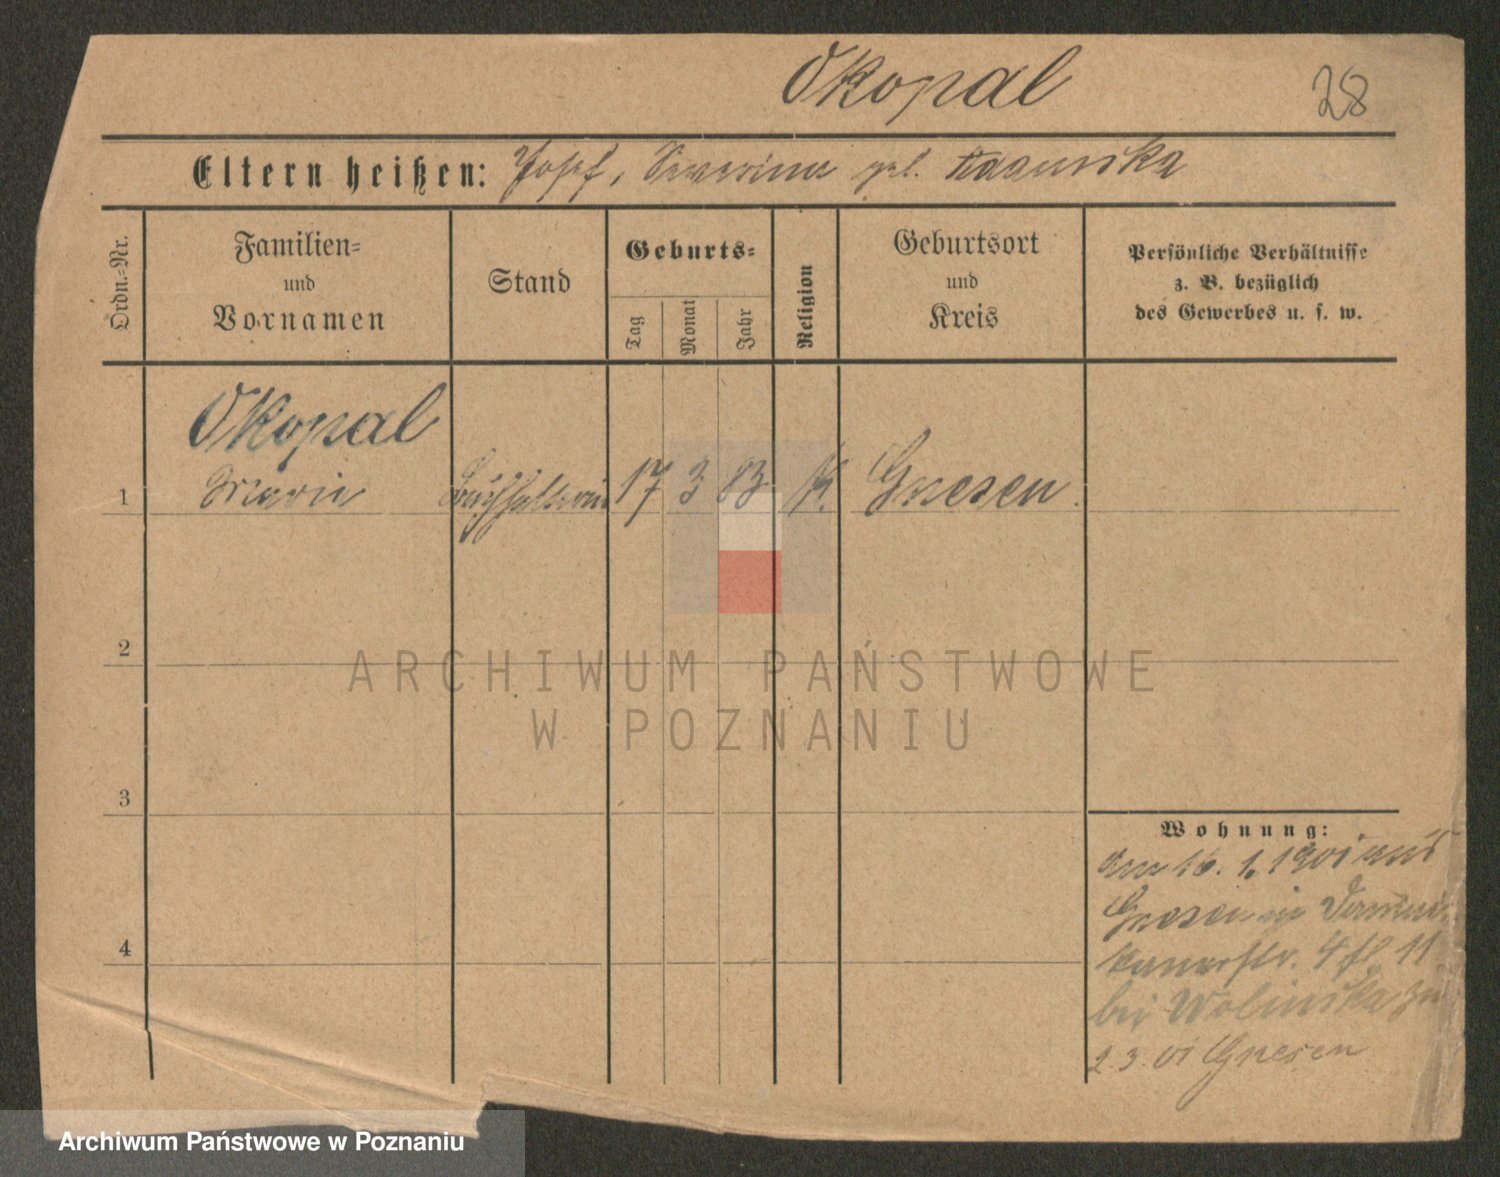 Okopal
28
Eltern heißen: Josef, Severina geb.
Ordn.-Nr.
Familien-
und
Vornamen
Stand
Geburts-
Tag
Monat
Jahr
Religion
Geburtsort
und
Kreis
Persönliche Verhältnisse
z. B. bezüglich
des Gewerbes u. s. w.
Okopal
1 Marie Buchhalterin 17 3 83 K. Gnesen
2
3
4
Wohnung:
am 16. 1. 1901 aus
Gnesen in Domini-
kanerstr. 4 11
bei Wolinska zu
2.3.01 Gnesen
ARCHIWUM PAŃSTWOWE
W POZNANIU
Archiwum Państwowe w Poznaniu